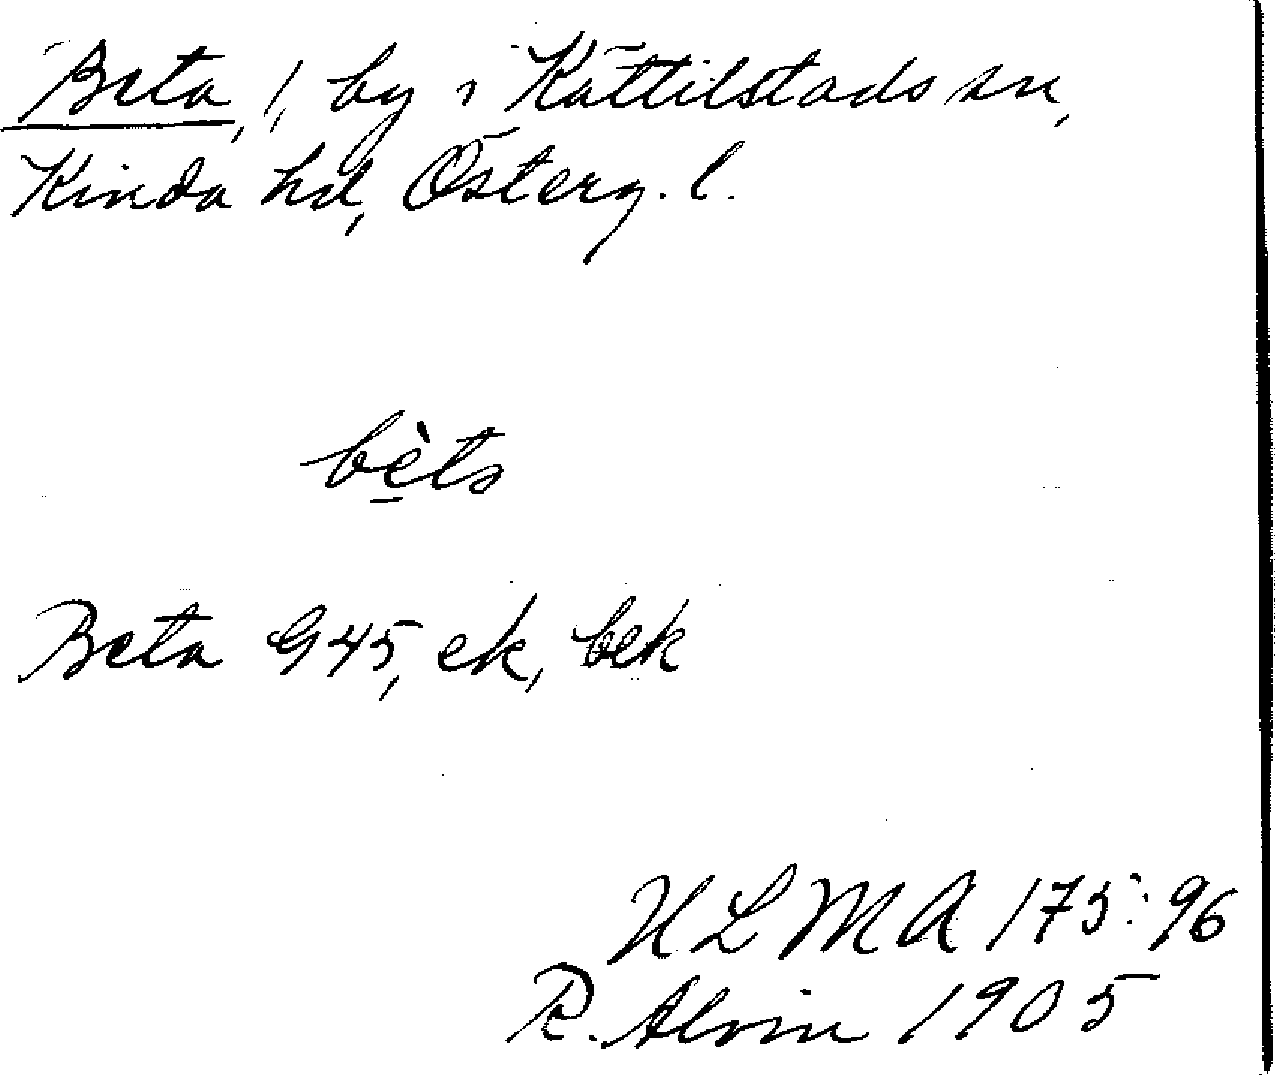 Beta, 1, by i Kättilstads sn,
Kinda hd, Österg. l.
bè̠ta
Beta G45, ek, bek
ULMA 175:96
R. Alvin 1905